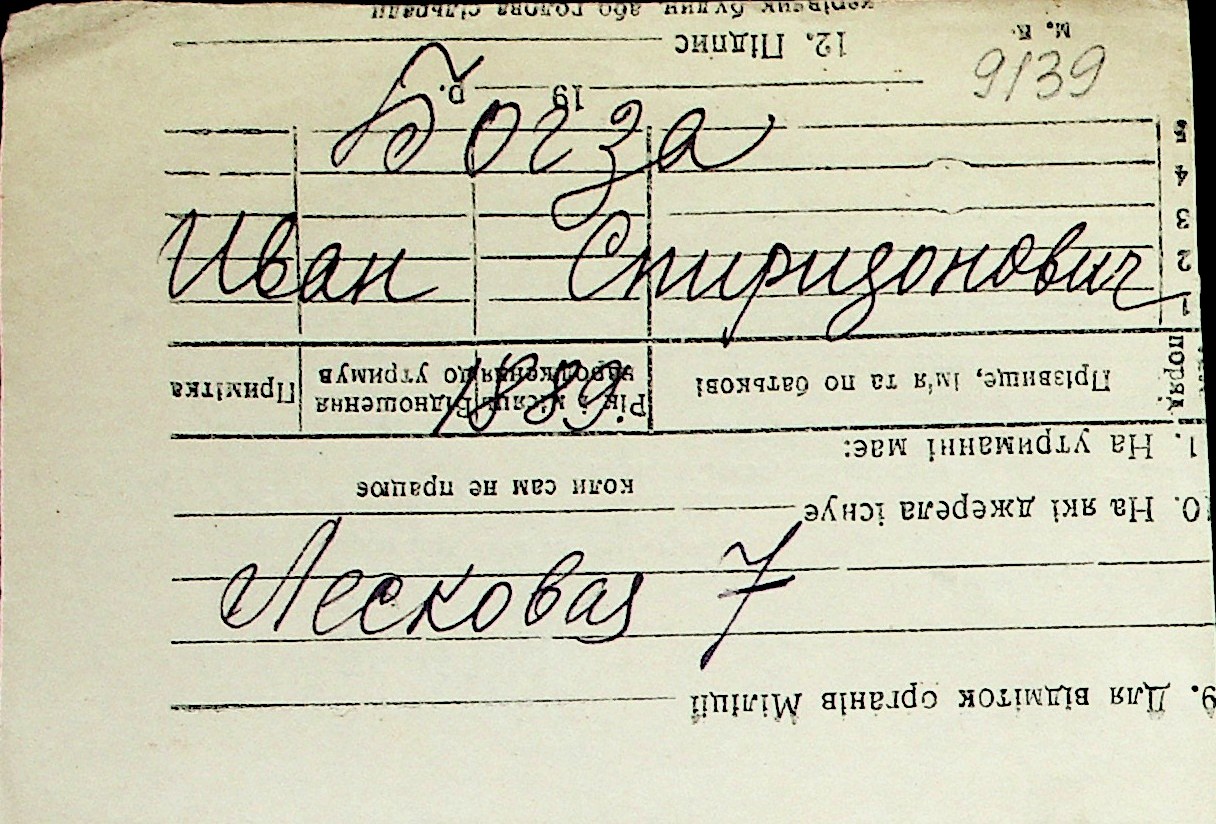 9139
Богза
Иван Спиридонович
1889
Лесковая 7
9. Для відміток органів Міліції
10. На які джерела існує
коли сам не працює
1. На утриманні має:
поряд.
Прізвище, ім'я та по батькові
Рік і місяць народження
Відношення до утримув
Примітка
1
2
3
4
5
19 р.
12. Підпис
м. п.
керівник будин. або голова сільради